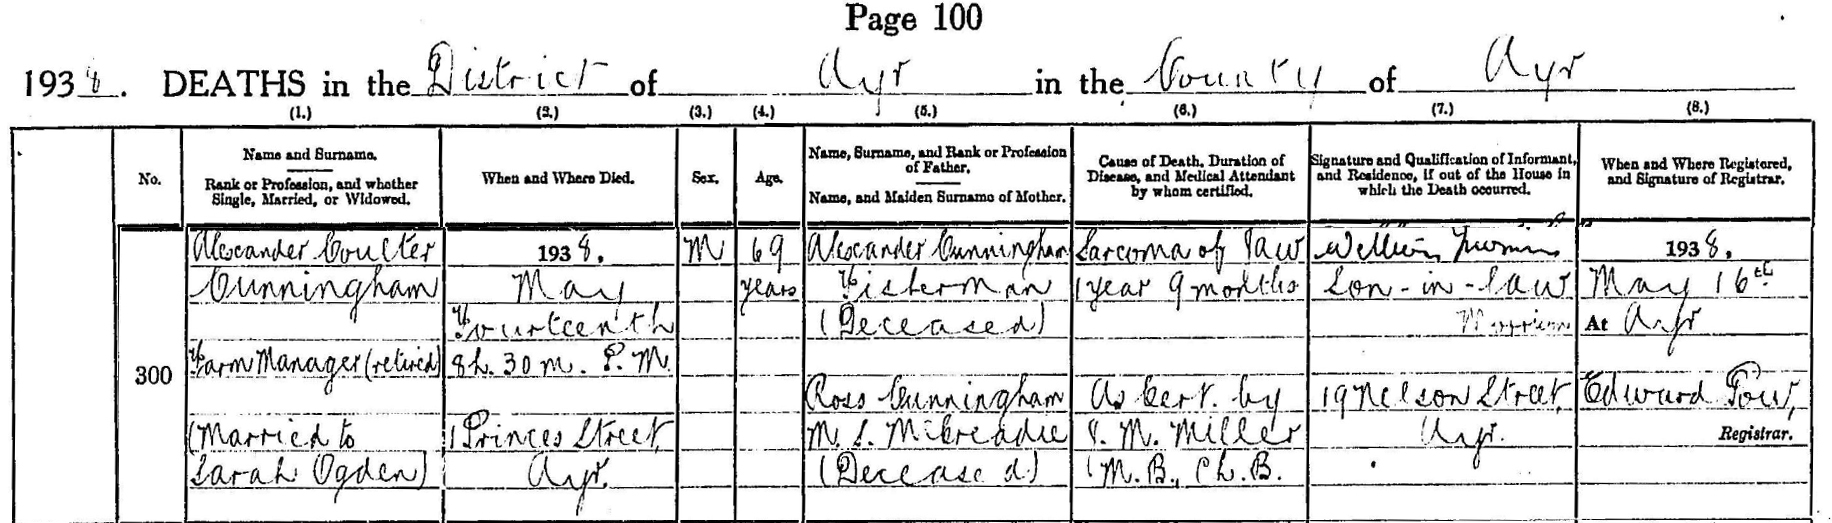 Page 100
1938. DEATHS in the District of Ayr in the County of Ayr
(1.) (2.) (3.) (4.) (5.) (6.) (7.) (8.)
No.
Name and Surname.
Rank or Profession, and whether
Single, Married, or Widowed.
When and Where Died.
Sex.
Age.
Name, Surname, and Rank or Profession
of Father.
Name, and Maiden Surname of Mother.
Cause of Death, Duration of
Disease, and Medical Attendant
by whom certified.
Signature and Qualification of Informant,
and Residence, if out of the House in
which the Death occurred.
When and Where Registered,
and Signature of Registrar.
300
Alexander Coulter
Cunningham
Farm Manager (retired)
(Married to
Sarah Ogden)
1938.
May
Fourteenth
8h. 30m. P.M.
1 Princes Street,
Ayr.
M
69
years
Alexander Cunningham
Fisherman
(Deceased)
Ross Cunningham
M. S. McCreadie
(Deceased)
Sarcoma of Jaw
1 year 9 months
As Cert. by
J. M. Miller
M.B., Ch.B.
Son-in-law
19 Nelson Street,
Ayr.
1938.
May 16th
At Ayr
Edward
Registrar.